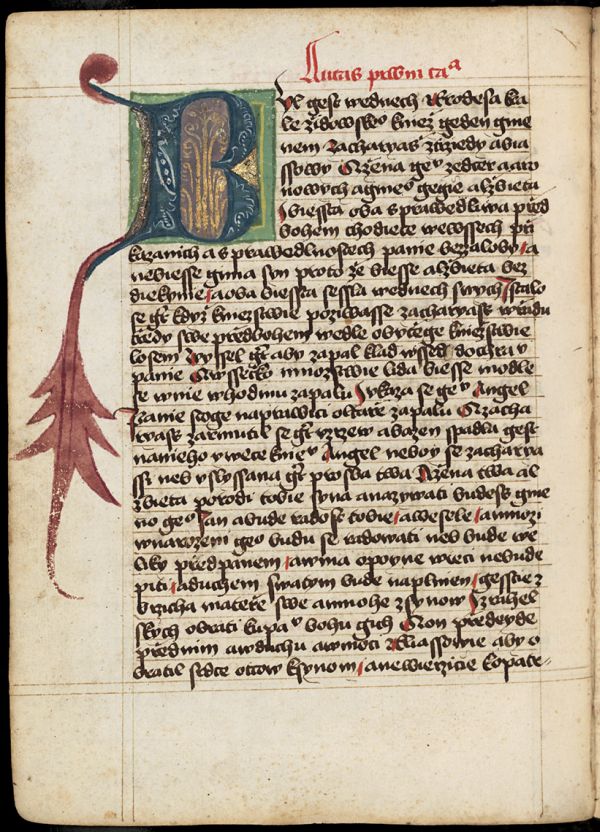 Lucas prwni ca^a
Byl gest wednech Erodesa kra
le židowskeo kniez geden gme
nem zacharyas ztriedy abia
ssowy Ežena geo zedcer aaro
nowych agmeo gegie alžbieta
Biessta oba sprawedliwa przed
bohem chodiece wewssech przi
kazanich asprawedlnostech panie bezžaloby a
nebiesse gima syn proto že biesse alžbieta bez
dietkynie aoba biessta sessla wednech swych Istalo
se gt kdyz kniezstwie požiwasse zacharyass wrzadu
tredy swe przedbohem wedle obyczege kniezstwie
losem wyssel gt aby zapal klad wssed dochra v
panie Ewssecko mnozstwie lida biesse modle
se wnie whodinu zapalu Iukaza se geo Angel
panie stoge naprawici oltarze zapalu Ezacha
ryass zarmutil se gt vzrzew abazen spadla gest
naneho vwece kniev Angel neboy se zacharya
ssi neb vslyssana gt prosba twa Ažena twa al
žbieta porodi tobie syna anazywati budess gme
no geo Jan abude radost tobie awesele amnozi
wnarozeni geo budu se radowati neb bude we
liky przedpanem awina opoyne nreti nebude
piti aduchem swatym bude naplnen gesscie z
brzicha materze swe amnohe zsynow Izrahel
skych obrati kupanv bohu gich Eon przedeyde
przednim awduchu awmoci Eliassowie aby o
bratil srdce otcow ksynom anewierzicie kopatr-